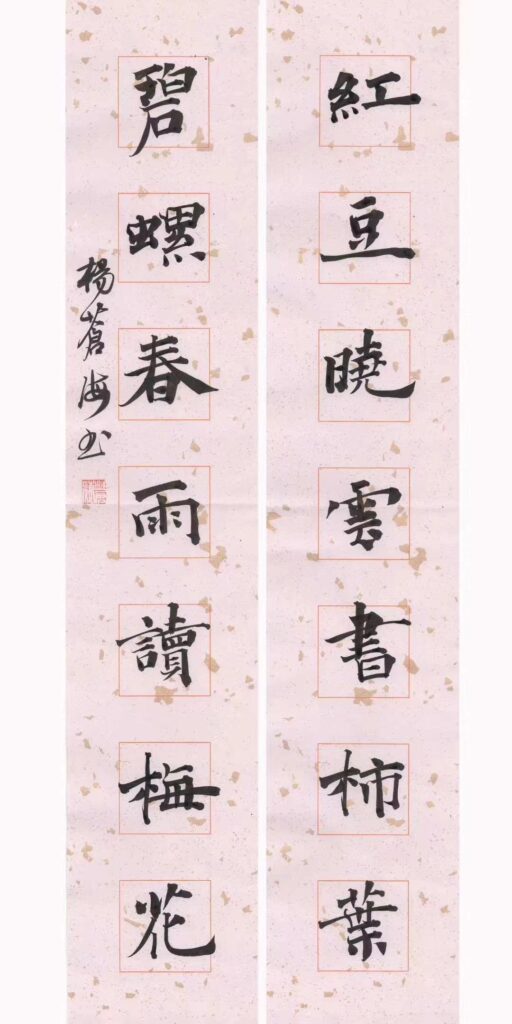 紅豆曉雲書柿葉
碧螺春雨讀梅花
楊蒼海书